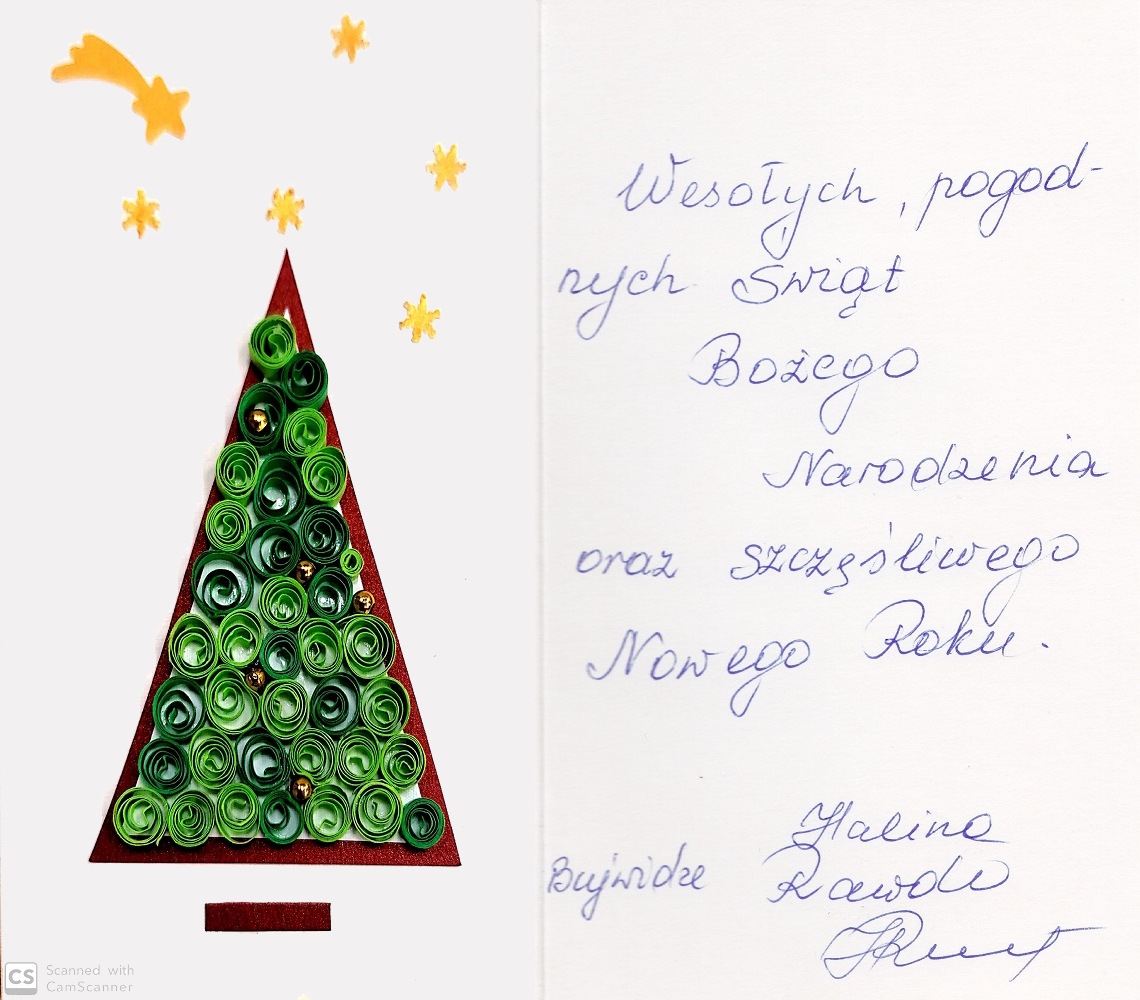 Wesołych, pogod-
nych Świąt
Bożego
Narodzenia
oraz szczęśliwego
Nowego Roku.
Halina
Bujwidze Rawdo
CS Scanned with
CamScanner